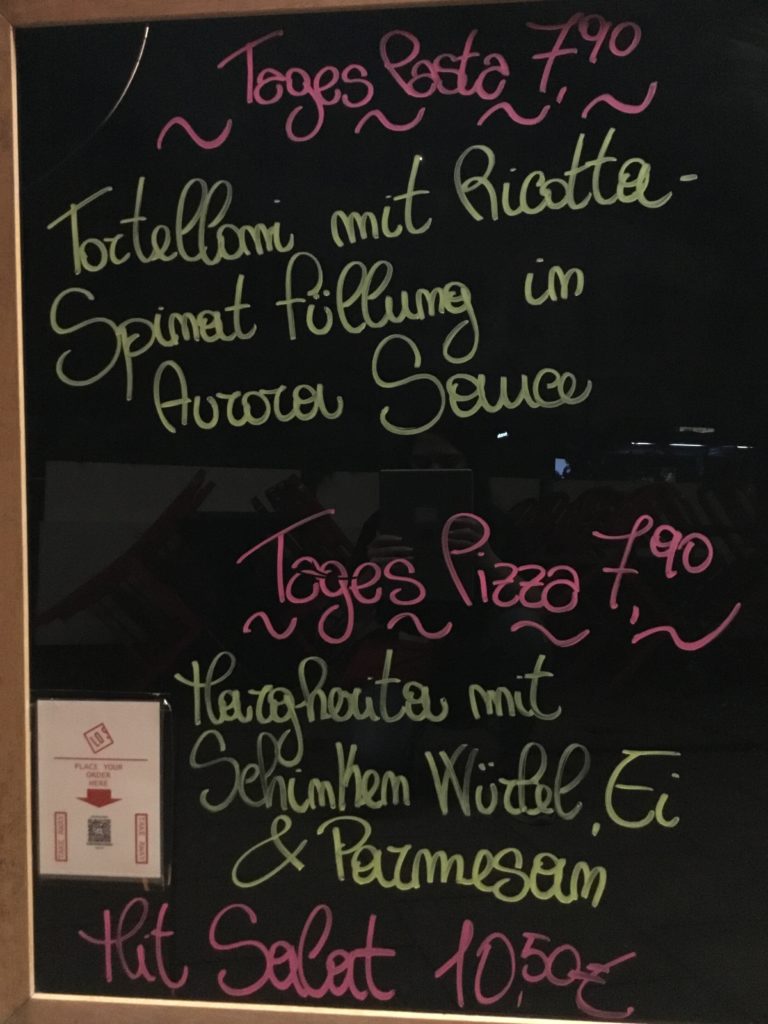 Tages Pasta 7,90
Tortelloni mit Ricotta-
Spinat füllung in
Aurora Sauce
Tages Pizza 7,90
Margherita mit
Schinken Würfel, Ei
& Parmesan
Mit Salat 10,50€
LOS
PLACE YOUR
ORDER
HERE
TAKE AWAY
TAKE AWAY